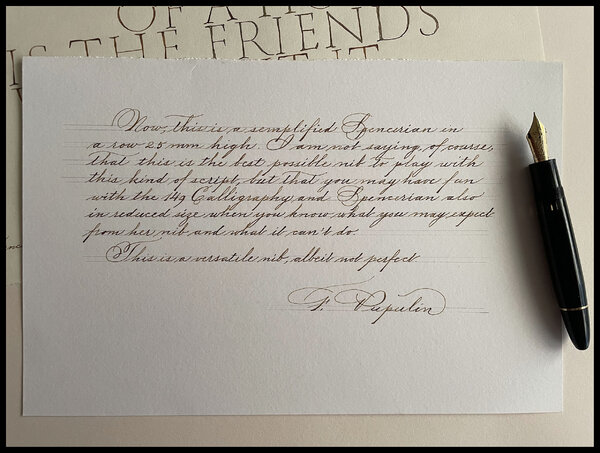 OF A HO
IS THE FRIENDS
Now, this is a semplified Spencerian in
a row 2.5 mm high. I am not saying, of course,
that this is the best possible nib to play with
this kind of script, but that you may have fun
with the 149 Calligraphy and Spencerian also
in reduced size when you know what you may expect
from her nib and what it can't do.
This is a versatile nib, albeit not perfect
F. Pupulin